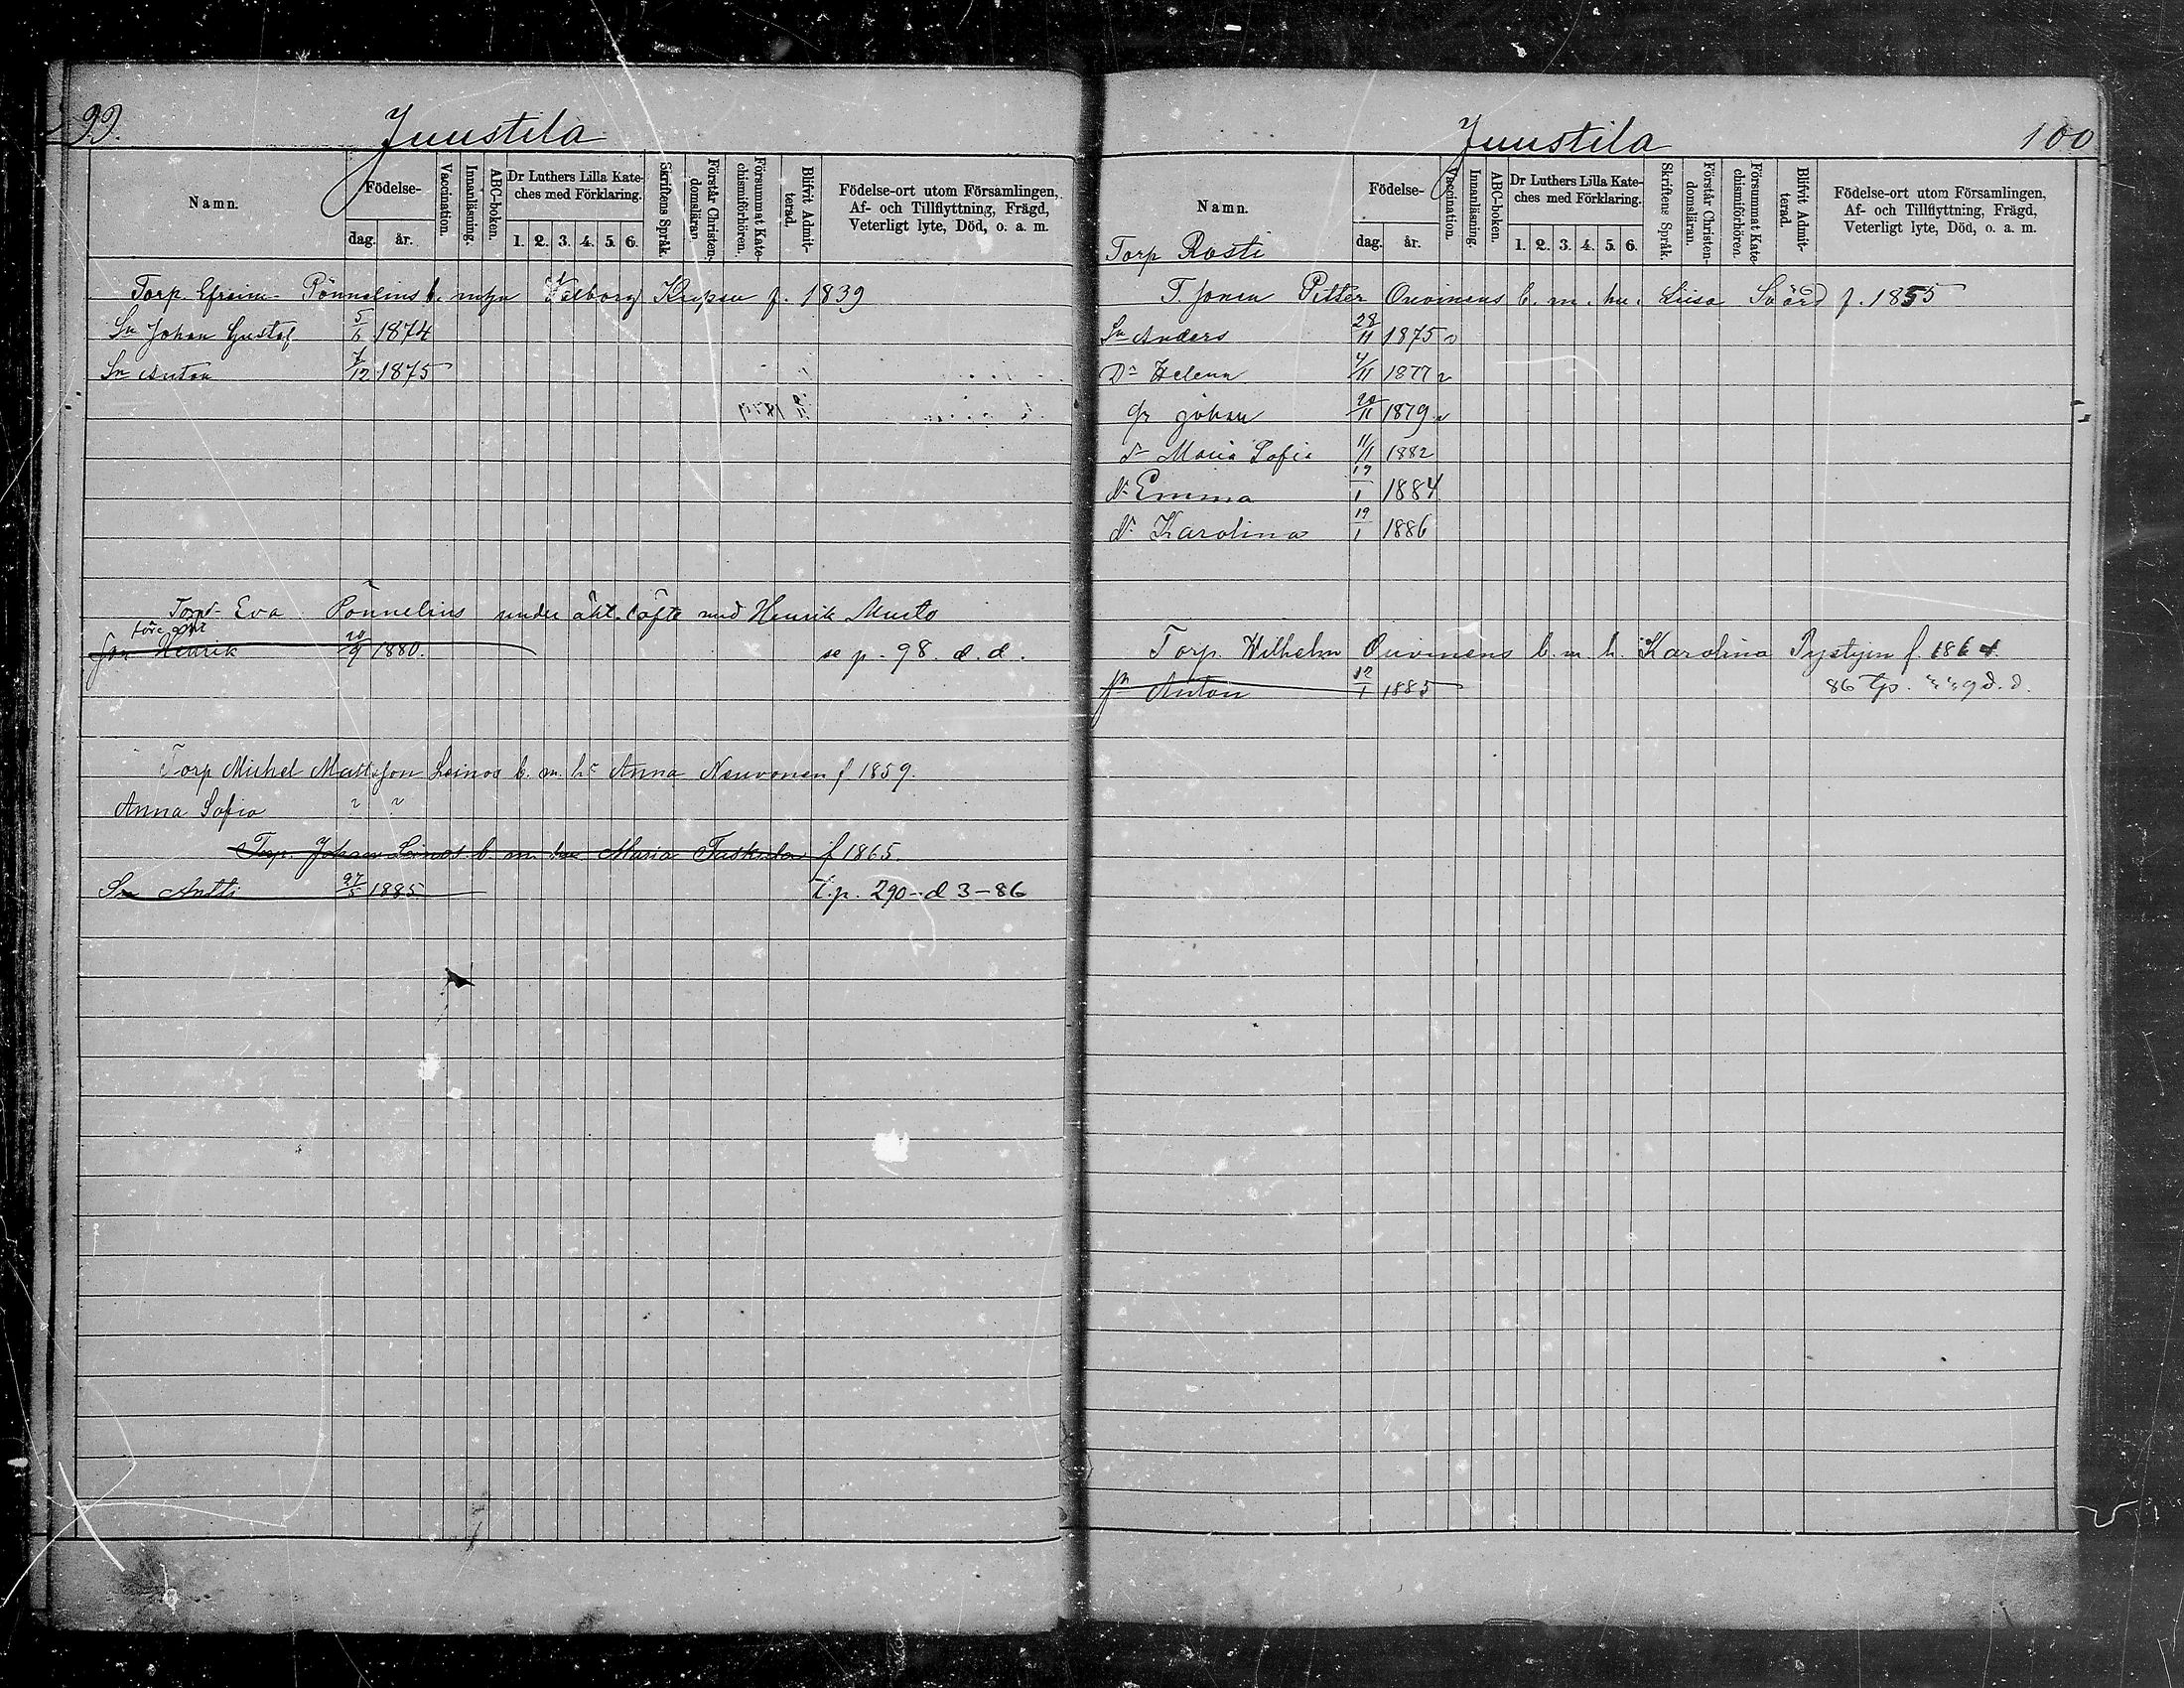 99.
Juustila
Namn.
Födelse-
dag.
år.
Vaccination.
Innanläsning.
ABC-boken.
Dr Luthers Lilla Kate-
ches med Förklaring.
1. 2. 3. 4. 5. 6.
Skriftens Språk.
Förstår Christen-
domsläran.
Försummat Kate-
chismiförhören.
Blifvit Admit-
terad.
Födelse-ort utom Församlingen,
Af- och Tillflyttning, Frägd,
Veterligt lyte, Död, o. a. m.
Torp. Efraim Pönnelius b. m. f. 1839
Sn Johan Gustaf 5/6 1874
Sn Anton 7/12 1875
Torpd- Eva Pönnelius under äkt. löfte med Henrik Musto
Henrik 20/9 1880. se p. 98. d. d.
Torp Michel Mattsson Leinos b. m. h. Anna Neuvonen f 1859.
Anna Sofia
Torp. Johan Leinos b. m. hu Maria Taskula f 1865
Sn Antti 27/5 1885 t. p. 290 - d 3-86
Juustila
100
Namn.
Födelse-
dag.
år.
Vaccination.
Innanläsning.
ABC-boken.
Dr Luthers Lilla Kate-
ches med Förklaring.
1. 2. 3. 4. 5. 6.
Skriftens Språk.
Förstår Christen-
domsläran.
Försummat Kate-
chismiförhören.
Blifvit Admit-
terad.
Födelse-ort utom Församlingen,
Af- och Tillflyttning, Frägd,
Veterligt lyte, Död, o. a. m.
Torp Rosti
T. Jonen Pitter Ouvinens b. m. hu. Liisa Svärd f. 1855
Sn Anders 28/11 1875 v
Dr Helena 4/11 1877 v
Johan 20/11 1879 v
dr Maria Sofia 11/1 1882
dr Emma 19/1 1884
dr Karolina 19/1 1886
Torp. Wilhelm Ouvinens b. m. h. Karolina Pystynen f. 1864
sn Anton 12/1 1885 86 tp.